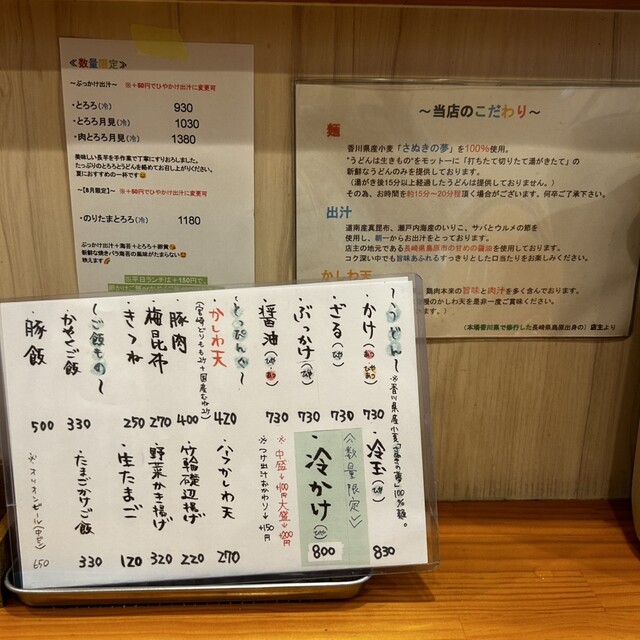 ≪数量限定≫
～ぶっかけ出汁～ ※＋50円でひやかけ出汁に変更可
・とろろ(冷) 930
・とろろ月見(冷) 1030
・肉とろろ月見(冷) 1380
美味しい長芋を手作業で丁寧にすりおろしました。
たっぷりのとろろとうどんを絡めてお召し上がりください。
夏におすすめの一杯です😄
～【8月限定】～ ※＋50円でひやかけ出汁に変更可
・のりたまとろろ(冷) 1180
ぶっかけ出汁＋海苔＋とろろ＋卵黄😘
新鮮な焼きバラ海苔の風味がたまらない😄
映えます🌈
※平日ランチは＋150円で
～当店のこだわり～
麺
香川県産小麦「さぬきの夢」を100％使用。
"うどんは生きもの"をモットーに「打ちたて切りたて湯がきたて」の
新鮮なうどんのみを提供しております。
（湯がき後15分以上経過したうどんは提供しておりません。）
その為、お時間を約15分～20分程頂く場合がございます。何卒ご了承下さい。
出汁
道南産真昆布、瀬戸内海産のいりこ、サバとウルメの節を
使用し、朝一からお出汁をとっております。
店主の地元である長崎県島原市の甘めの醤油を使用しており
コク深い中でも旨味あふれるすっきりとした口当たりをお楽しみください。
かしわ天
鶏肉本来の旨味と肉汁を多く含んでおります。
自慢のかしわ天を是非一度ご賞味ください。
（本場香川県で修行した長崎県島原出身の）店主より
～うどん～ ※香川県産小麦「さぬきの夢」100％麺。
・かけ(あつ・ひやあつ) 730
・ざる(ひや) 730
・ぶっかけ(ひや) 730
・醤油(ひや・あつ) 730
・冷玉(ひや) 830
≪数量限定≫
・冷かけ(ひや) 800
※中盛↓100円 大盛↓200円
※つけ出汁おかわり↓150円
～とっぴんぐ～
・かしわ天 420
(宮崎どりもも2ケ＋国産むね2ケ)
・豚肉 400
・梅昆布 270
・きつね 250
・ハーフかしわ天 270
・竹輪磯辺揚げ 220
・野菜かき揚げ 320
・生たまご 120
～ご飯もの～
・かやくご飯 330
・豚飯 500
・たまごかけご飯 330
※オリオンビール(中ビン) 650